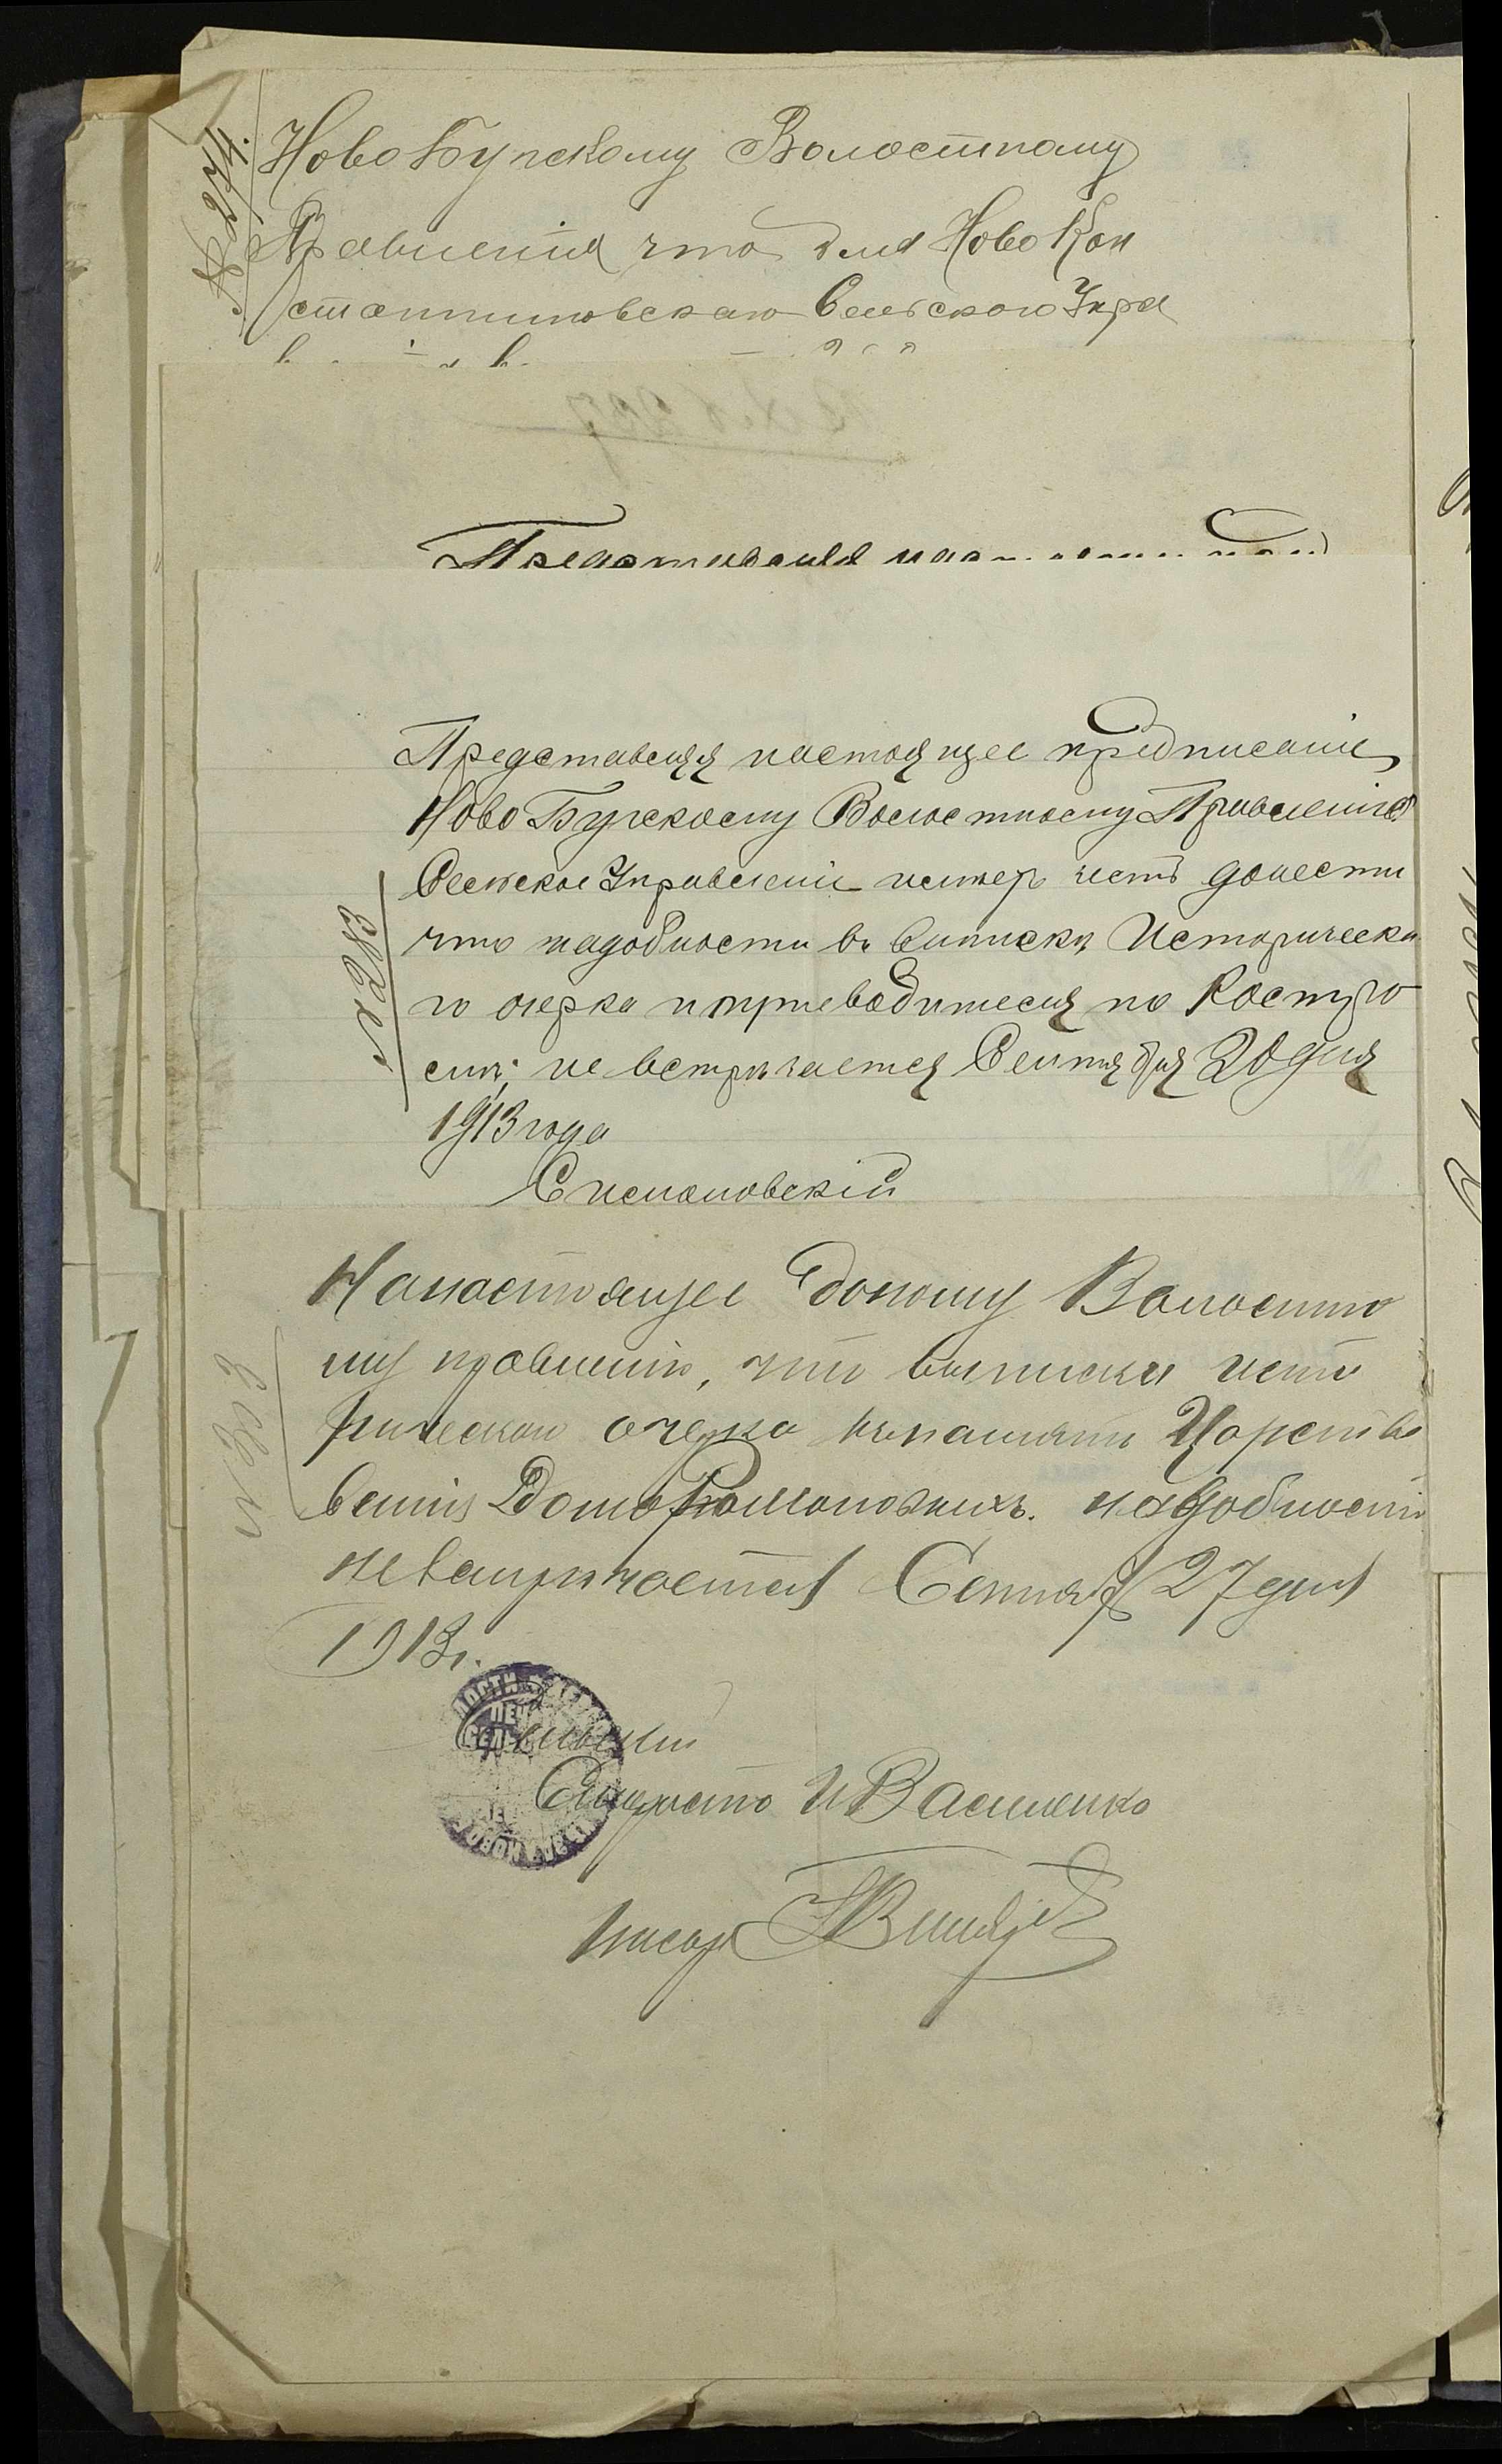 № 274.
Ново Бугскому Волостному
Правленія что для Ново Кон
стантиновскаго Сельскаго Упра
Представляя
Представляя настоящее предписаніе
Ново Бугскому Волостному Правленію
Сельское Управленіе имѣетъ честь донести
№ 283
что надобности въ выпискѣ Историческа
го очерка и путеводителя по Костро
мѣ; не встрѣчается Сентября 20 дня
1913 года
На настоящее доношу Волостно
му правленію, что выписки исто
№ 303
рическаго очерка къ памяти Царство
ванія Дома Романовыхъ. надобности
не встрѣчается Сентяб 27 дня
1913 г.
Сельскій
Староста И Василенко
Писарь